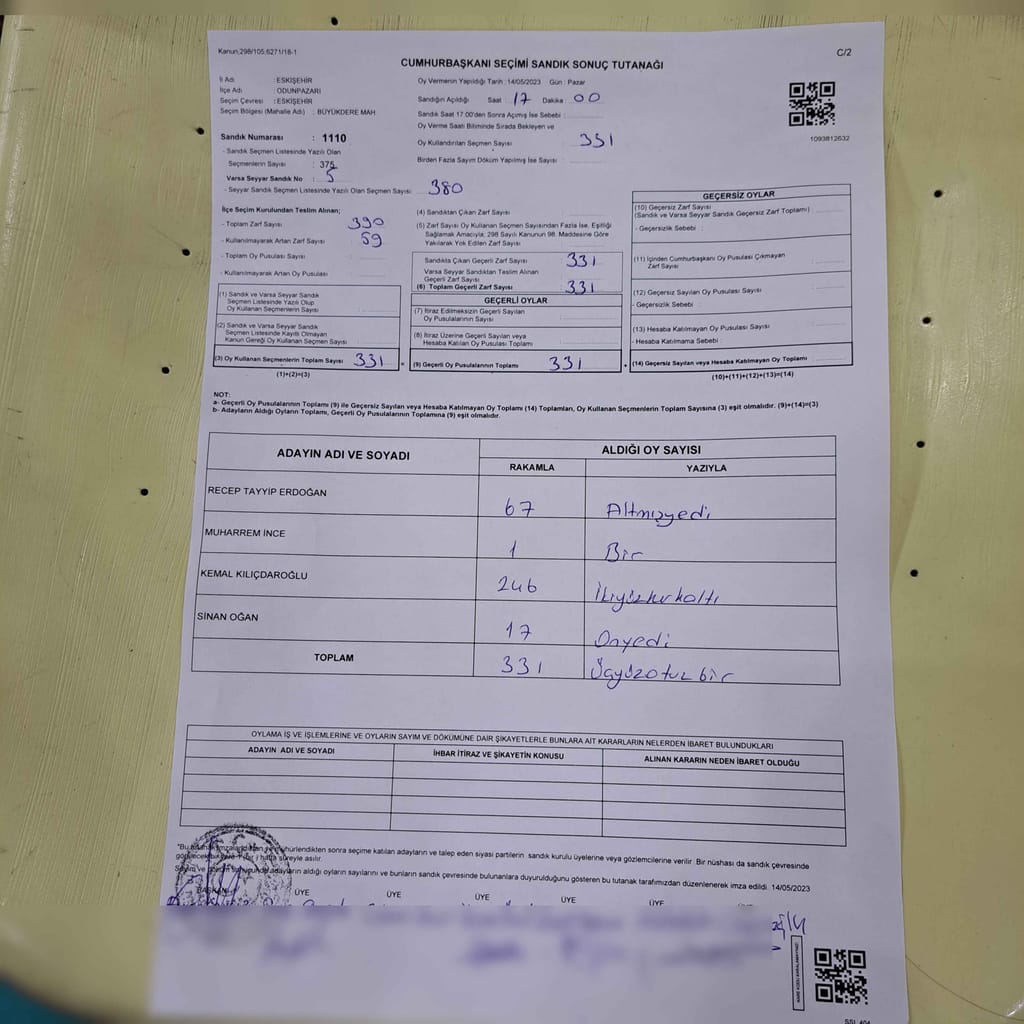 Kanun,298/105,6271/18-1
C/2
CUMHURBAŞKANI SEÇİMİ SANDIK SONUÇ TUTANAĞI
İl Adı : ESKİŞEHİR
İlçe Adı : ODUNPAZARI
Seçim Çevresi : ESKİŞEHİR
Seçim Bölgesi (Mahalle Adı) : BÜYÜKDERE MAH
Oy Vermenin Yapıldığı Tarih : 14/05/2023 Gün : Pazar
Sandığın Açıldığı Saat : 17 Dakika : 00
Sandık Saat 17.00'den Sonra Açımış İse Sebebi :
Oy Verme Saati Bitiminde Sırada Bekleyen ve
Oy Kullandırılan Seçmen Sayısı : 331
Birden Fazla Sayım Döküm Yapılmış İse Sayısı :
1093812632
Sandık Numarası : 1110
- Sandık Seçmen Listesinde Yazılı Olan
Seçmenlerin Sayısı : 375
Varsa Seyyar Sandık No : 5
- Seyyar Sandık Seçmen Listesinde Yazılı Olan Seçmen Sayısı : 380
İlçe Seçim Kurulundan Teslim Alınan;
- Toplam Zarf Sayısı 390
- Kullanılmayarak Artan Zarf Sayısı 59
- Toplam Oy Pusulası Sayısı
- Kullanılmayarak Artan Oy Pusulası
(1) Sandık ve Varsa Seyyar Sandık
Seçmen Listesinde Yazılı Olup
Oy Kullanan Seçmenlerin Sayısı
(2) Sandık ve Varsa Seyyar Sandık
Seçmen Listesinde Kayıtlı Olmayan
Kanun Gereği Oy Kullanan Seçmen Sayısı
(3) Oy Kullanan Seçmenlerin Toplam Sayısı 331 =
(1)+(2)=(3)
(4) Sandıktan Çıkan Zarf Sayısı
(5) Zarf Sayısı Oy Kullanan Seçmen Sayısından Fazla İse, Eşitliği
Sağlamak Amacıyla; 298 Sayılı Kanunun 98. Maddesine Göre
Yakılarak Yok Edilen Zarf Sayısı
Sandıkta Çıkan Geçerli Zarf Sayısı 331
Varsa Seyyar Sandıktan Teslim Alınan
Geçerli Zarf Sayısı
(6) Toplam Geçerli Zarf Sayısı 331
GEÇERLİ OYLAR
(7) İtiraz Edilmeksizin Geçerli Sayılan
Oy Pusulalarının Sayısı
(8) İtiraz Üzerine Geçerli Sayılan veya
Hesaba Katılan Oy Pusulası Toplamı
(9) Geçerli Oy Pusulalarının Toplamı 331 +
GEÇERSİZ OYLAR
(10) Geçersiz Zarf Sayısı
(Sandık ve Varsa Seyyar Sandık Geçersiz Zarf Toplamı)
- Geçersizlik Sebebi :
(11) İçinden Cumhurbaşkanı Oy Pusulası Çıkmayan
Zarf Sayısı
(12) Geçersiz Sayılan Oy Pusulası Sayısı
- Geçersizlik Sebebi :
(13) Hesaba Katılmayan Oy Pusulası Sayısı
- Hesaba Katılmama Sebebi :
(14) Geçersiz Sayılan veya Hesaba Katılmayan Oy Toplamı
(10)+(11)+(12)+(13)=(14)
NOT:
a- Geçerli Oy Pusulalarının Toplamı (9) ile Geçersiz Sayılan veya Hesaba Katılmayan Oy Toplamı (14) Toplamları, Oy Kullanan Seçmenlerin Toplam Sayısına (3) eşit olmalıdır. (9)+(14)=(3)
b- Adayların Aldığı Oyların Toplamı, Geçerli Oy Pusulalarının Toplamına (9) eşit olmalıdır.
ADAYIN ADI VE SOYADI
ALDIĞI OY SAYISI
RAKAMLA YAZIYLA
RECEP TAYYİP ERDOĞAN 67 Altmışyedi
MUHARREM İNCE 1 Bir
KEMAL KILIÇDAROĞLU 246 İkiyüzkırkaltı
SİNAN OĞAN 17 Onyedi
TOPLAM 331 Üçyüzotuzbir
OYLAMA İŞ VE İŞLEMLERİNE VE OYLARIN SAYIM VE DÖKÜMÜNE DAİR ŞİKAYETLERLE BUNLARA AİT KARARLARIN NELERDEN İBARET BULUNDUKLARI
ADAYIN ADI VE SOYADI İHBAR İTİRAZ VE ŞİKAYETİN KONUSU ALINAN KARARIN NEDEN İBARET OLDUĞU
mühürlendikten sonra seçime katılan adayların ve talep eden siyasi partilerin sandık kurulu üyelerine veya gözlemcilerine verilir. Bir nüshası da sandık çevresinde
hafta süreyle asılır.
adayların aldığı oyların sayılarını ve bunların sandık çevresinde bulunanlara duyurulduğunu gösteren bu tutanak tarafımızdan düzenlenerek imza edildi. 14/05/2023
BAŞKAN ÜYE ÜYE ÜYE ÜYE ÜYE